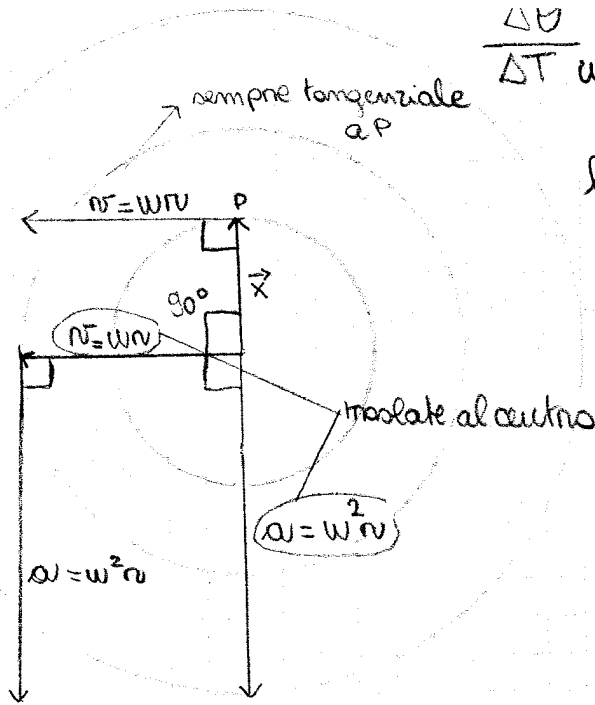 Δϑ
ΔT
sempre tangenziale
a P
v = ωr
P
x⃗
90°
v = ωr
traslate al centro
a = ω²r
a = ω²r